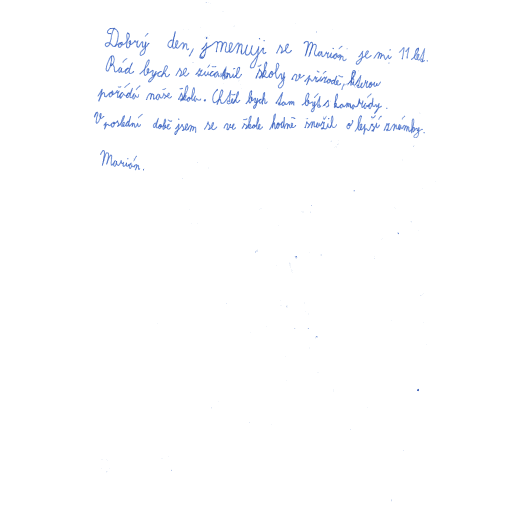 Dobrý den, jmenuji se Marián je mi 11 let.
Rád bych se zúčastnil školy v přírodě, kterou
pořádá naše škola. Chtěl bych tam být s kamarády.
V poslední době jsem se ve škole hodně snažil o lepší známky.
Marián.